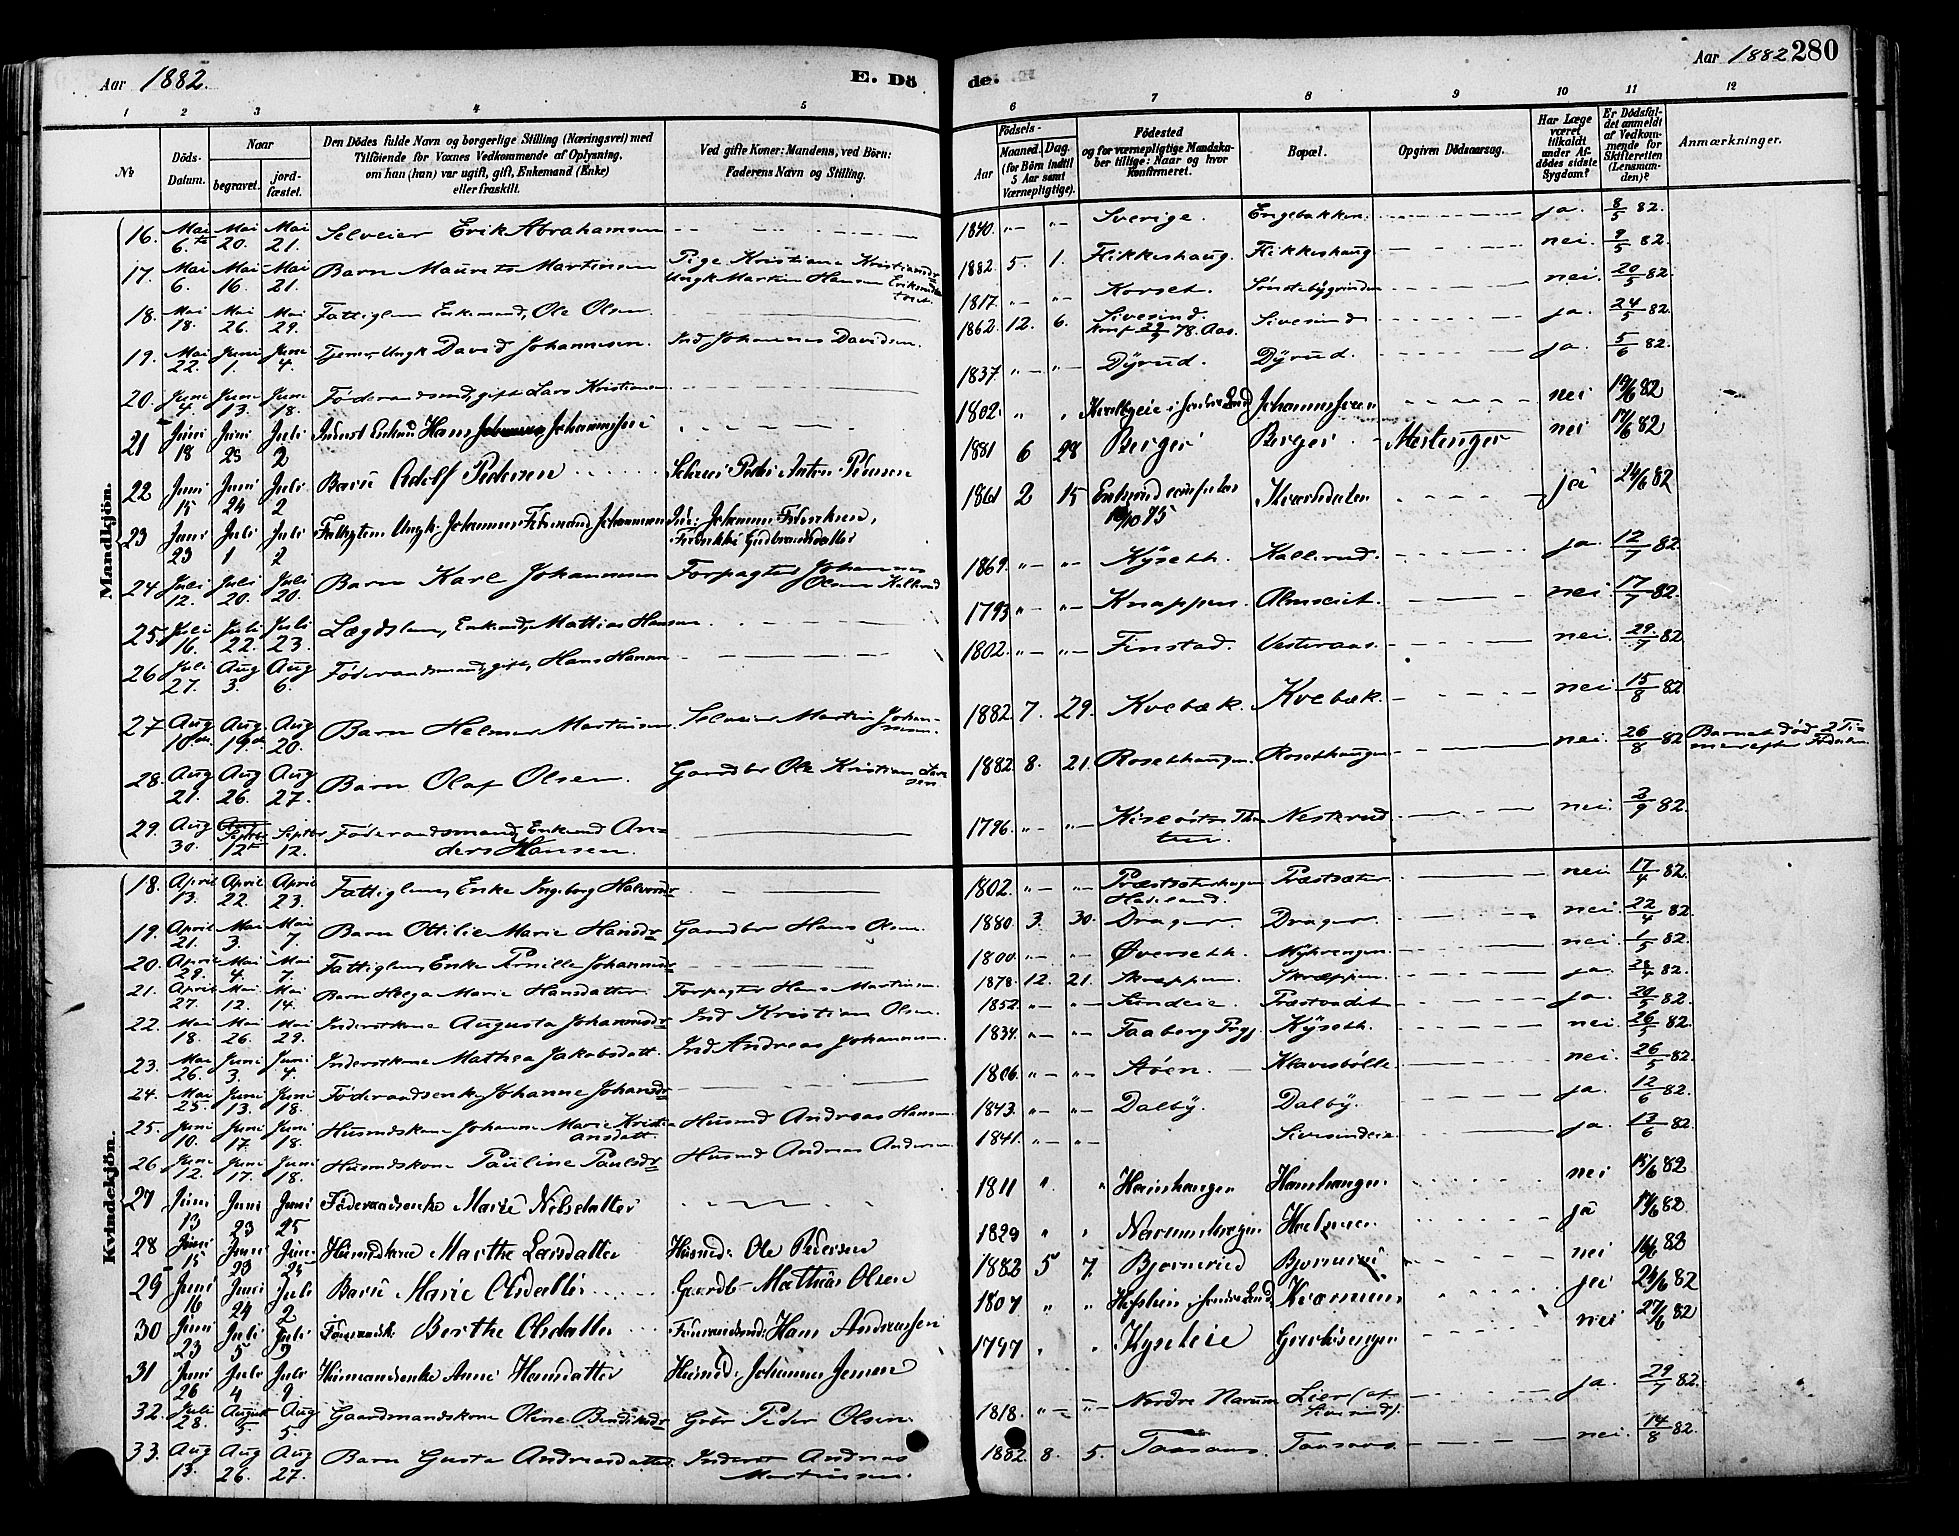 Aar 1882.
E. Dö
de.
Aar 1882 280
1 2 3 4 5 6 7 8 9 10 11 12
No
Döds-Datum.
Naar
begravet.
jord-fæstet.
Den Dödes fulde Navn og borgerlige Stilling (Næringsvei) med
Tilföiende for Voxnes Vedkommende af Oplysning,
om han (hun) var ugift, gift, Enkemand (Enke)
eller fraskilt.
Ved gifte Koner: Mandens, ved Börn:
Faderens Navn og Stilling.
Födsels-
Aar
Maaned. Dag.
(for Börn indtil
5 Aar samt
Værnepligtige).
Födested
og for værnepligtige Mandska-
ber tillige: Naar og hvor
konfirmeret.
Bopæl.
Opgiven Dödsaarsag.
Har Læge
været
tilkaldt
under Af-
dödes sidste
Sygdom?
Er Dödsfal-
det anmeldt
af Vedkom-
mende for
Skifteretten
(Lensman-
den)?
Anmærkninger.
Mandkjön.
16. Mai 6. Mai 20. Mai 21. Selveier Erik Abrahamsen 1840. Sverige. Engebakken. ja. 8/5 82.
17. Mai 6. Mai 16. Mai 21. Barn Maurits Martinsen Pige Kristiane Ungk Martin Hansen 1882. 5. 1. Flikkeshaug. Flikkeshaug nei. 9/5 82.
18. Mai 18. Mai 26. Mai 29. Fattiglem Enkemand, Ole Olsen 1817. Korset. nei. 20/5 82.
19. Mai 22. Juni 1. Juni 4. Tjener, Ungk David Johannesen. Ind Johannes Davidsen. 1862. 12. 6. Sivesind. Konf 78. Aas. Sivesind ja. 24/5 82.
20. Juni 4. Juni 13. Juni 18. Föderaadsmand, gift Lars Kristiansen 1837. Dyrud. Dyrud. ja. 5/6 82.
21 Juni 18 Juni 23 Juli 2 Hans Johannessen 1802. nei 19/6 82
22 Juni 15 Juni 24 Juli 2 Barn Adolf Pedersen Anton Pedersen 1881 6 28 Berger Berger nei 17/6 82
23 Juni 23 Juli 1 Juli 2 Ungk. Johannes Gudbrandsdatter 1861 2 15 Kvarndalen ja 24/6 82
24. Juli 12. Juli 20. Juli 20. Barn Karl Johannesen Forpagter Johannes Olsen Kallerud 1869. Kyseth. Kallerud. ja. 12/7 82.
25. Juli 16. Juli 22. Juli 23. Lægdslem, Enkemd, Mathias Hansen 1793 Knappen. Almseiet. nei. 17/7 82.
26 Juli 27. Aug 3. Aug 6. Föderaadsmand, gift, Hans Hansen 1802. Finstad. Vesteraas. nei. 29/7 82.
27 Aug 10. Aug 19. Aug 20. Barn Helmer Martinsen. Selveier Martin Johansen. 1882. 7. 29. Kvebæk. Kvebæk. nei. 15/8 82
28. Aug 21. Aug 26. Aug 27. Barn Olaf Olsen. Gaardbr Ole Kristian Larsen. 1882. 8. 21. Rosethaugen. Rosethaugen nei. 26/8 82 Barnet död 2 Timer efter
29. Aug 30. Septbr 12 Septbr 12. Föderaadsmand, Enkemd Anders Hansen. 1796. Neskrud nei. 2/9 82.
Kvindekjön.
18. April 13. April 22. April 23. Fattiglem, Enke Ingeborg Halvorsdr 1802. Præstsæterhagen Præstsæter nei. 17/4 82.
19. April 21. Mai 3. Mai 7. Barn Ottilie Marie Hansdr Gaardbr Hans Olsen. 1880. 3. 30. Drager. Drager nei. 22/4 82.
20. April 29. Mai 4. Mai 7. Fattiglem, Enke Pernille Johannesdr 1800. Överseth. Myhrengen. nei. 1/5 82.
21. April 27. Mai 12. Mai 14. Barn Helga Marie Hansdatter. Forpagter Hans Martinsen. 1878. 12. 21. Skræppen. Skræppen. ja. 28/4 82.
22. Mai 18. Mai 26. Mai 29. Inderstkone Augusta Johannesdr Ind Kristian Olsen. 1852. ja. 20/5 82.
23. Mai 26. Juni 3. Juni 4. Inderstkone Mathea Jakobsdatt. Ind Andreas Johannesen. 1834. Faaberg Prgj. Kyseth. nei. 26/5 82.
24. Mai 25. Juni 13. Juni 18. Föderaadsenke Johanne Johansdr 1806. Klævesbölle nei. 26/5 82.
25. Juni 10. Juni 17. Juni 18. Husmdskone Johanne Marie Kristiansdatt. Husmd Andreas Hansen 1843. Dalby. Dalby. ja. 12/6 82.
26 Juni 12. Juni 17. Juni 18. Husmdskone Pauline Paulsdr Husmd Andreas Andersen 1841. Sivesindeie ja. 13/6 82.
27 Juni 13 Juni 23 Juni 25 Föderaadsenke Marie Nilsdatter 1811 Hamshaugen nei 15/6 82
28 Juni 15 Juni 23 Juni 25 Husmdskone Marthe Larsdatter Husmd. Ole Pedersen 1829 ja 17/6 82
29 Juni 16 Juni 24 Juli 2 Barn Marie Olsdatter Gaardb. Mathias Olsen 1882 5 7 nei
30 Juni 23 Juli 5 Juli Berthe Olsdatter Hans Andreassen 1807 ja 24/6 82
31 Juni 26 Juli 4 Juli 9 Husmandsenke Anne Hansdatter Husmd. Johannes Jensen 1797 Kyseteie nei 27/6 82
32. Juli 28. August 5. Aug 5. Gaardmandskone Oline Bendiksdr Gbr Peder Olsen. 1818. Nordre Narum Lier (af Sivesind). ja. 29/7 82.
33. Aug 13. Aug 26. Aug 27. Barn Gusta Andreasdatter Inderst Andreas Martinsen. 1882. 8. 5. Taasaas. Taasaas. nei. 14/8 82.